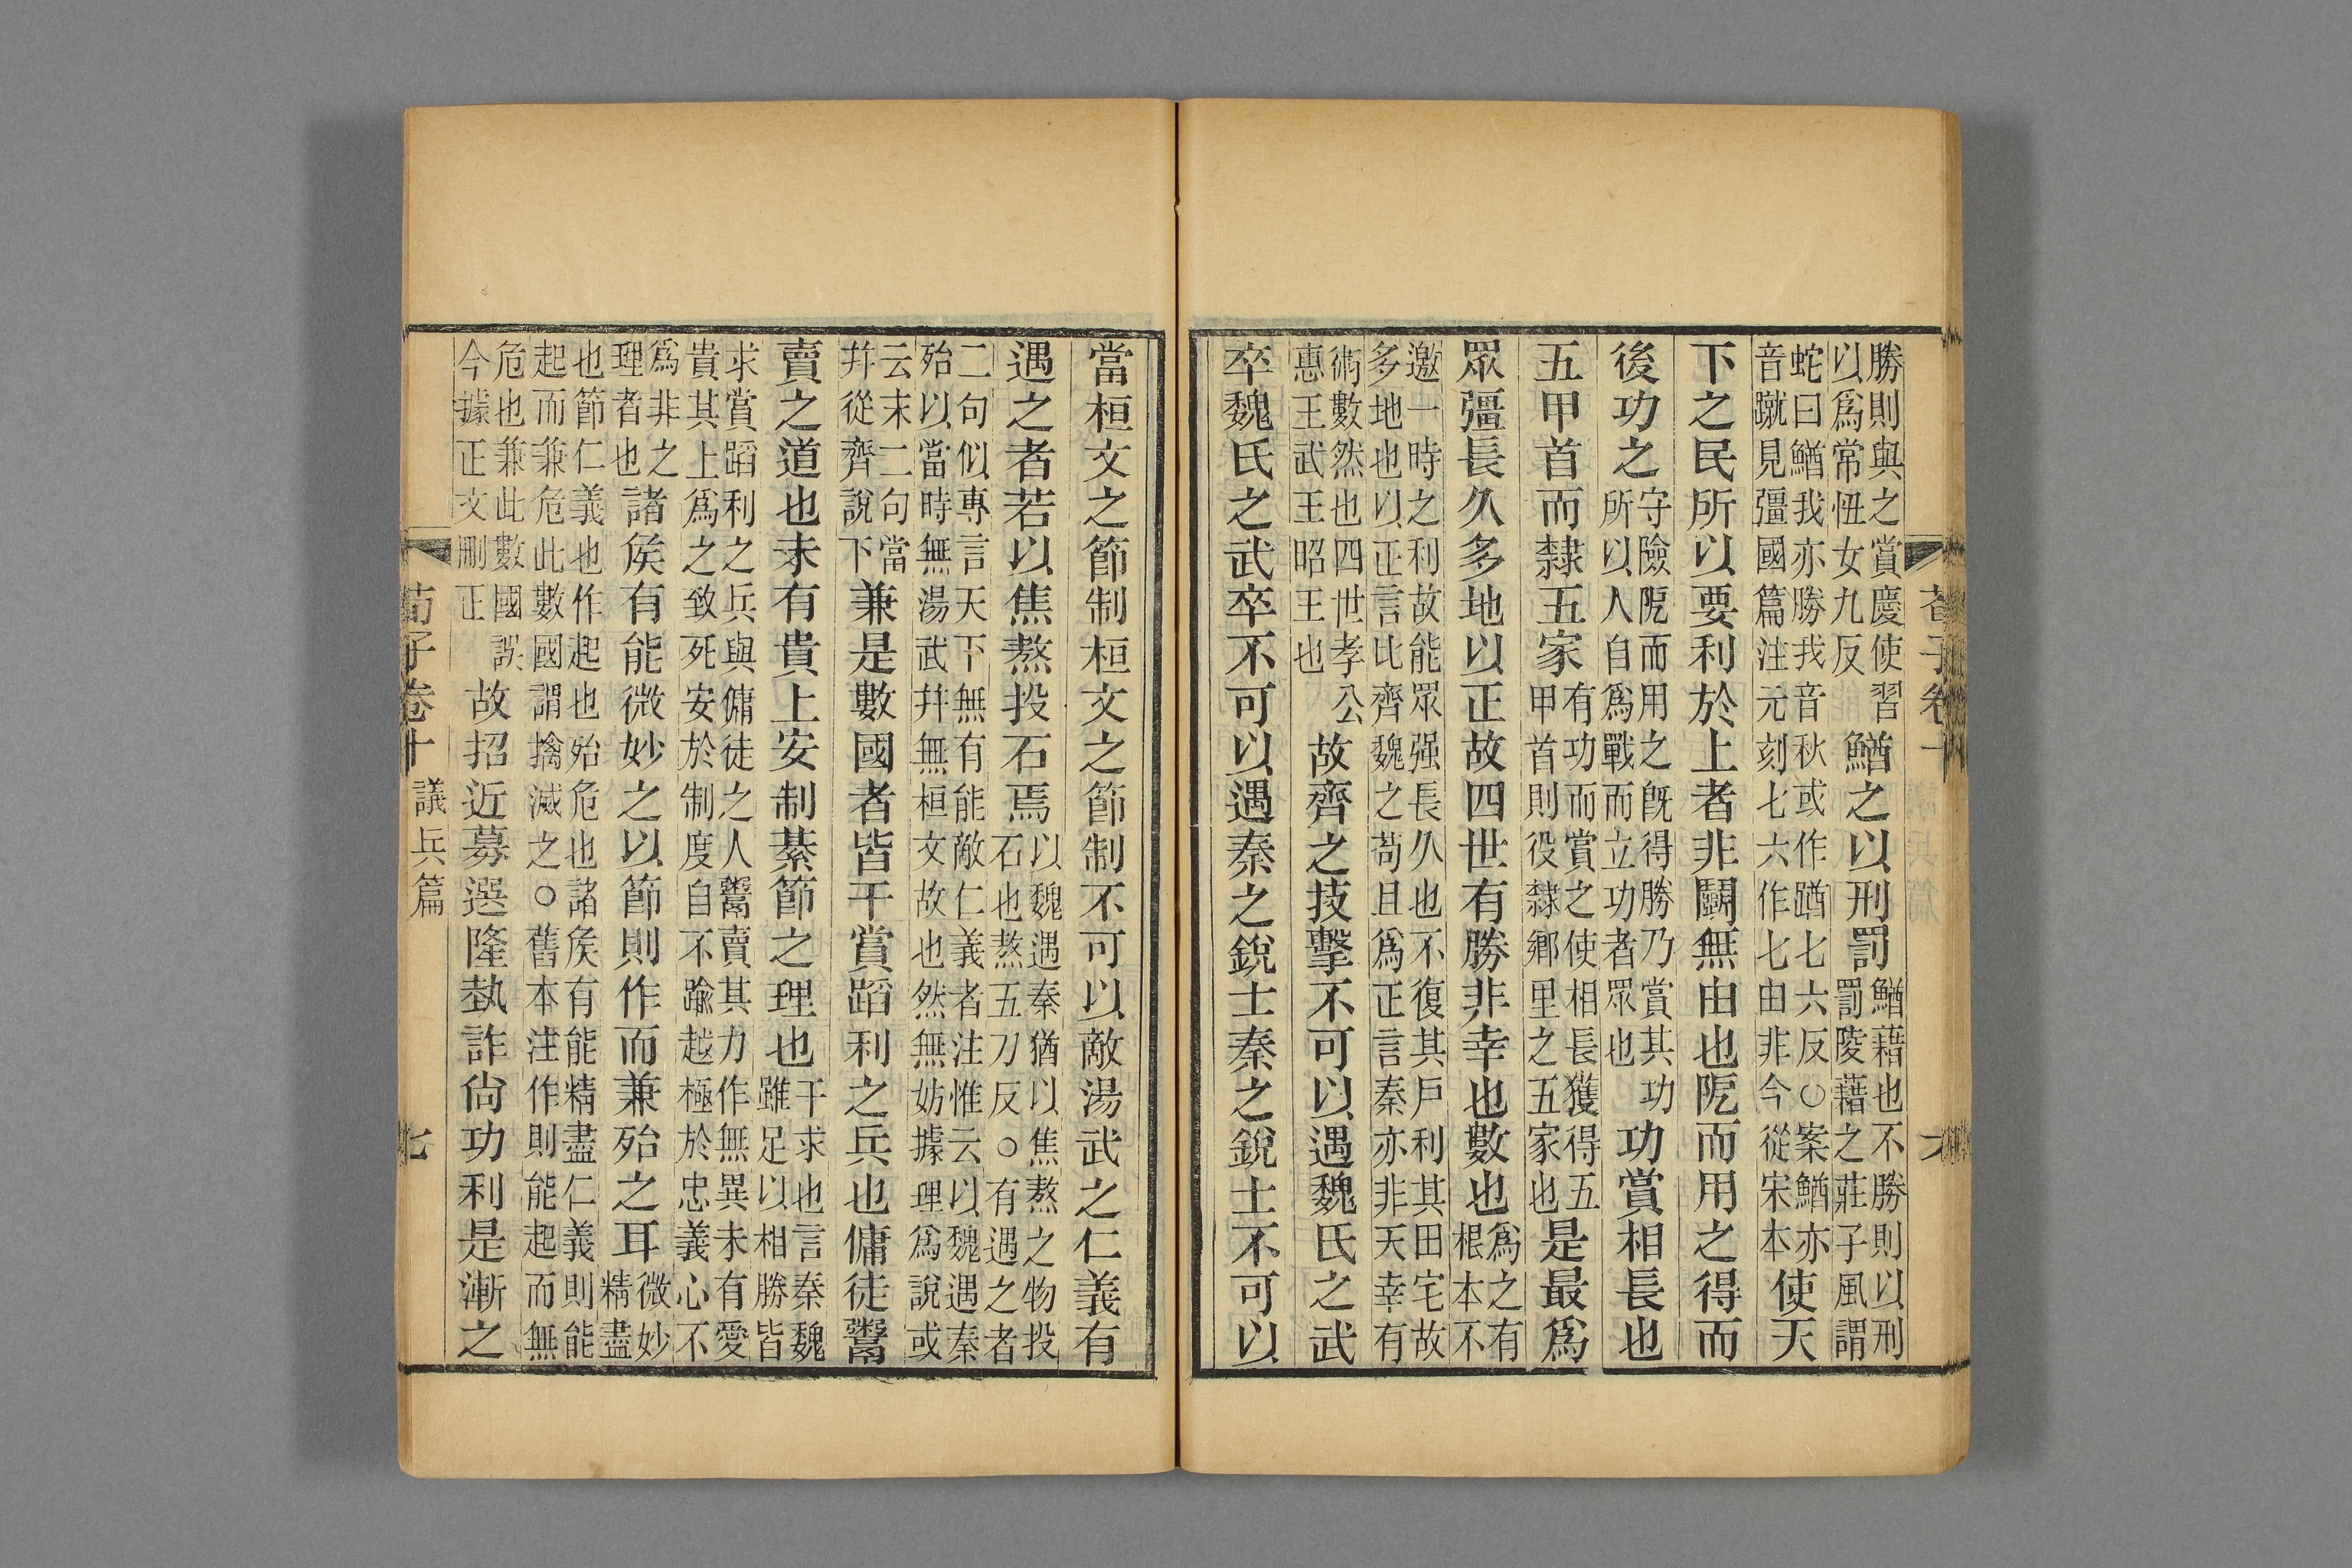 勝則與之賞慶使習以爲常忸女九反鰌之以刑罰鰌藉也不勝則以刑罰陵藉之莊子風謂
蛇曰鰌我亦勝我音秋或作䠓七六反○案鰌亦音蹴見彊國篇注元刻七六作七由非今從宋本使天
下之民所以要利於上者非鬭無由也阸而用之得而
後功之守險阸而用之旣得勝乃賞其功所以人自爲戰而立功者眾也功賞相長也
五甲首而隸五家有功而賞之使相長獲得五甲首則役隸鄉里之五家也是最爲
眾彊長久多地以正故四世有勝非幸也數也爲之有根本不
邀一時之利故能眾强長久也不復其戶利其田宅故多地也以正言比齊魏之苟且爲正言秦亦非天幸有
術數然也四世孝公惠王武王昭王也故齊之技擊不可以遇魏氏之武
卒魏氏之武卒不可以遇秦之銳士秦之銳士不可以
當桓文之節制桓文之節制不可以敵湯武之仁義有
遇之者若以焦熬投石焉以魏遇秦猶以焦熬之物投石也熬五刀反○有遇之者
二句似專言天下無有能敵仁義者注惟云以魏遇秦殆以當時無湯武幷無桓文故也然無妨據理爲說或
云末二句當幷從齊說下兼是數國者皆干賞蹈利之兵也傭徒鬻
賣之道也未有貴上安制綦節之理也干求也言秦魏雖足以相勝皆
求賞蹈利之兵與傭徒之人鬻賣其力作無異未有愛貴其上爲之致死安於制度自不踰越極於忠義心不
爲非之理者也諸矦有能微妙之以節則作而兼殆之耳微妙精盡
也節仁義也作起也殆危也諸矦有能精盡仁義則能起而兼危此數國謂擒滅之○舊本注作則能起而無
危也兼此數國誤今據正文刪正故招近募選隆埶詐尙功利是漸之
荀子卷十 議兵篇 七